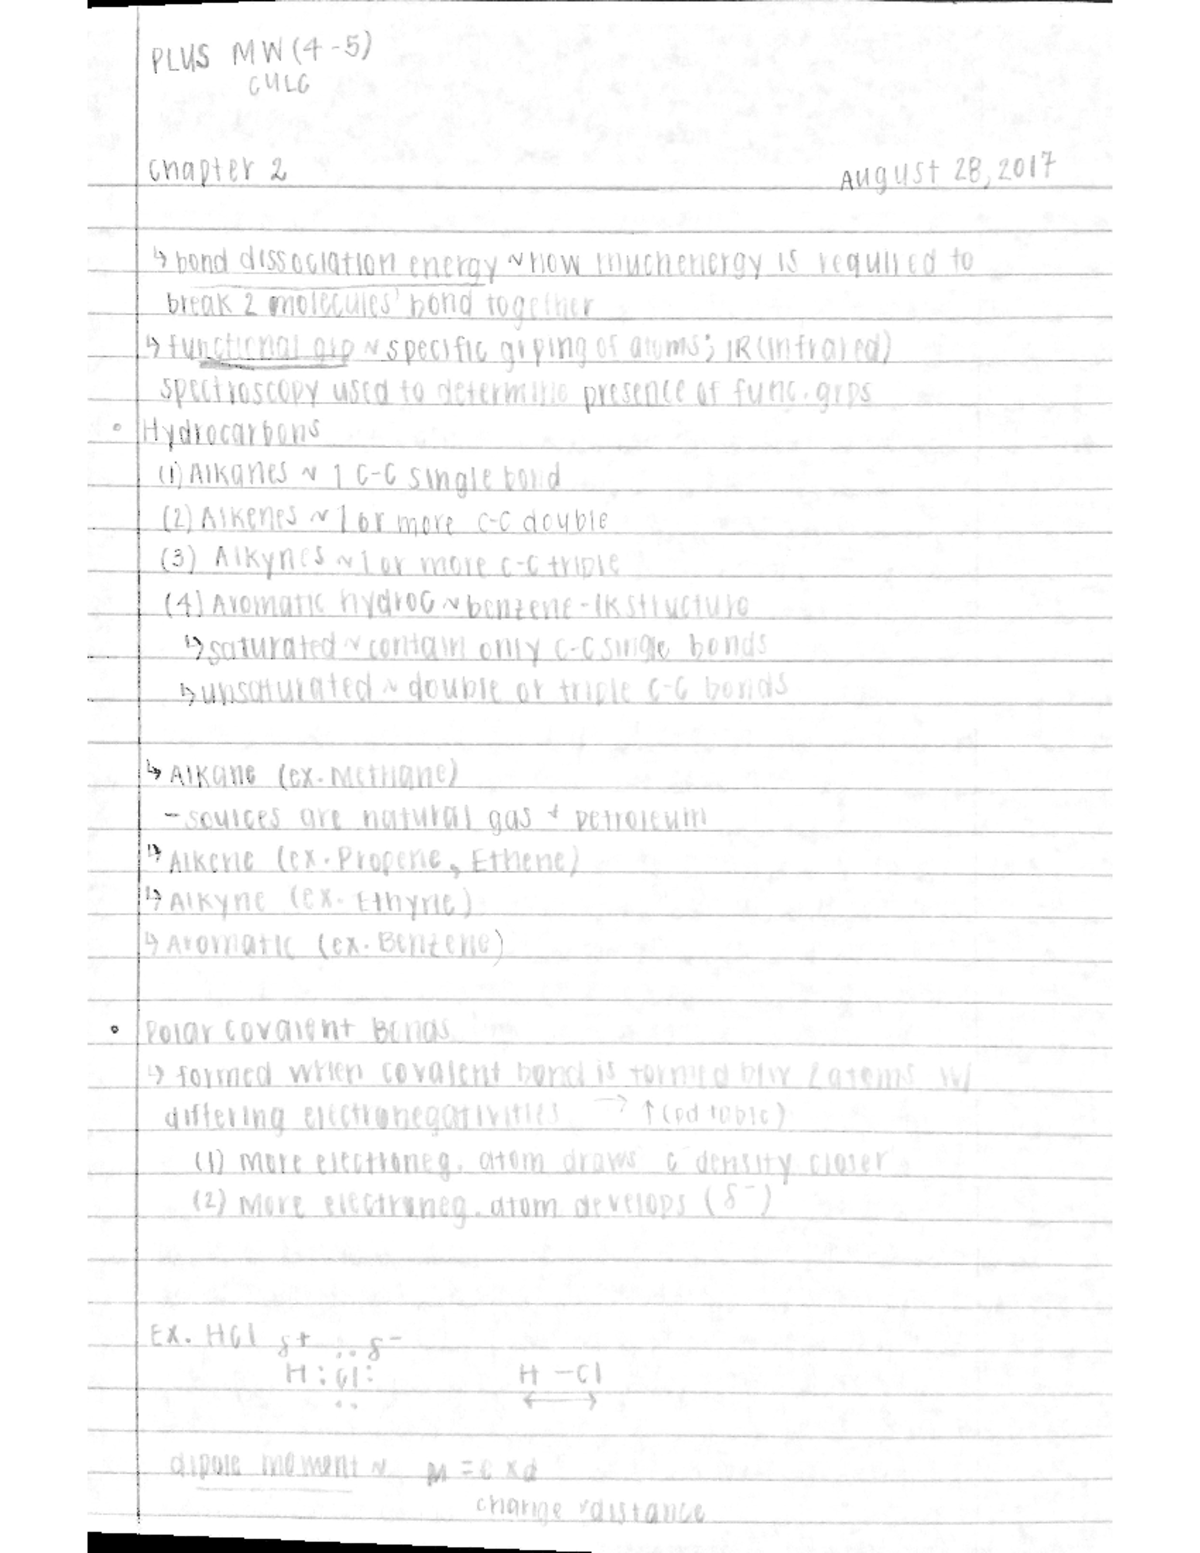 PLUS MW (4-5)
CULC
Chapter 2
August 28, 2017
↳ bond dissociation energy ~ how much energy is required to
break 2 molecules' bond together
↳ functional grp ~ specific grping of atoms; IR (infrared)
spectroscopy used to determine presence of func. grps
• Hydrocarbons
(1) Alkanes ~ 1 C-C single bond
(2) Alkenes ~ 1 or more C-C double
(3) Alkynes ~ 1 or more C-C triple
(4) Aromatic hydroc ~ benzene-lk structure
↳ saturated ~ contain only C-C single bonds
↳ unsaturated ~ double or triple C-C bonds
↳ Alkane (ex. Methane)
- sources are natural gas + petroleum
↳ Alkene (ex. Propene, Ethene)
↳ Alkyne (ex. Ethyne)
↳ Aromatic (ex. Benzene)
• Polar Covalent Bonds
↳ formed when covalent bond is formed btw 2 atoms w/
differing electronegativities → ↑ (pd table)
(1) more electroneg. atom draws e⁻ density closer
(2) More electroneg. atom develops (δ⁻)
Ex. HCl δ+ δ-
H : Cl : H - Cl
dipole moment ~ M = e x d
charge x distance